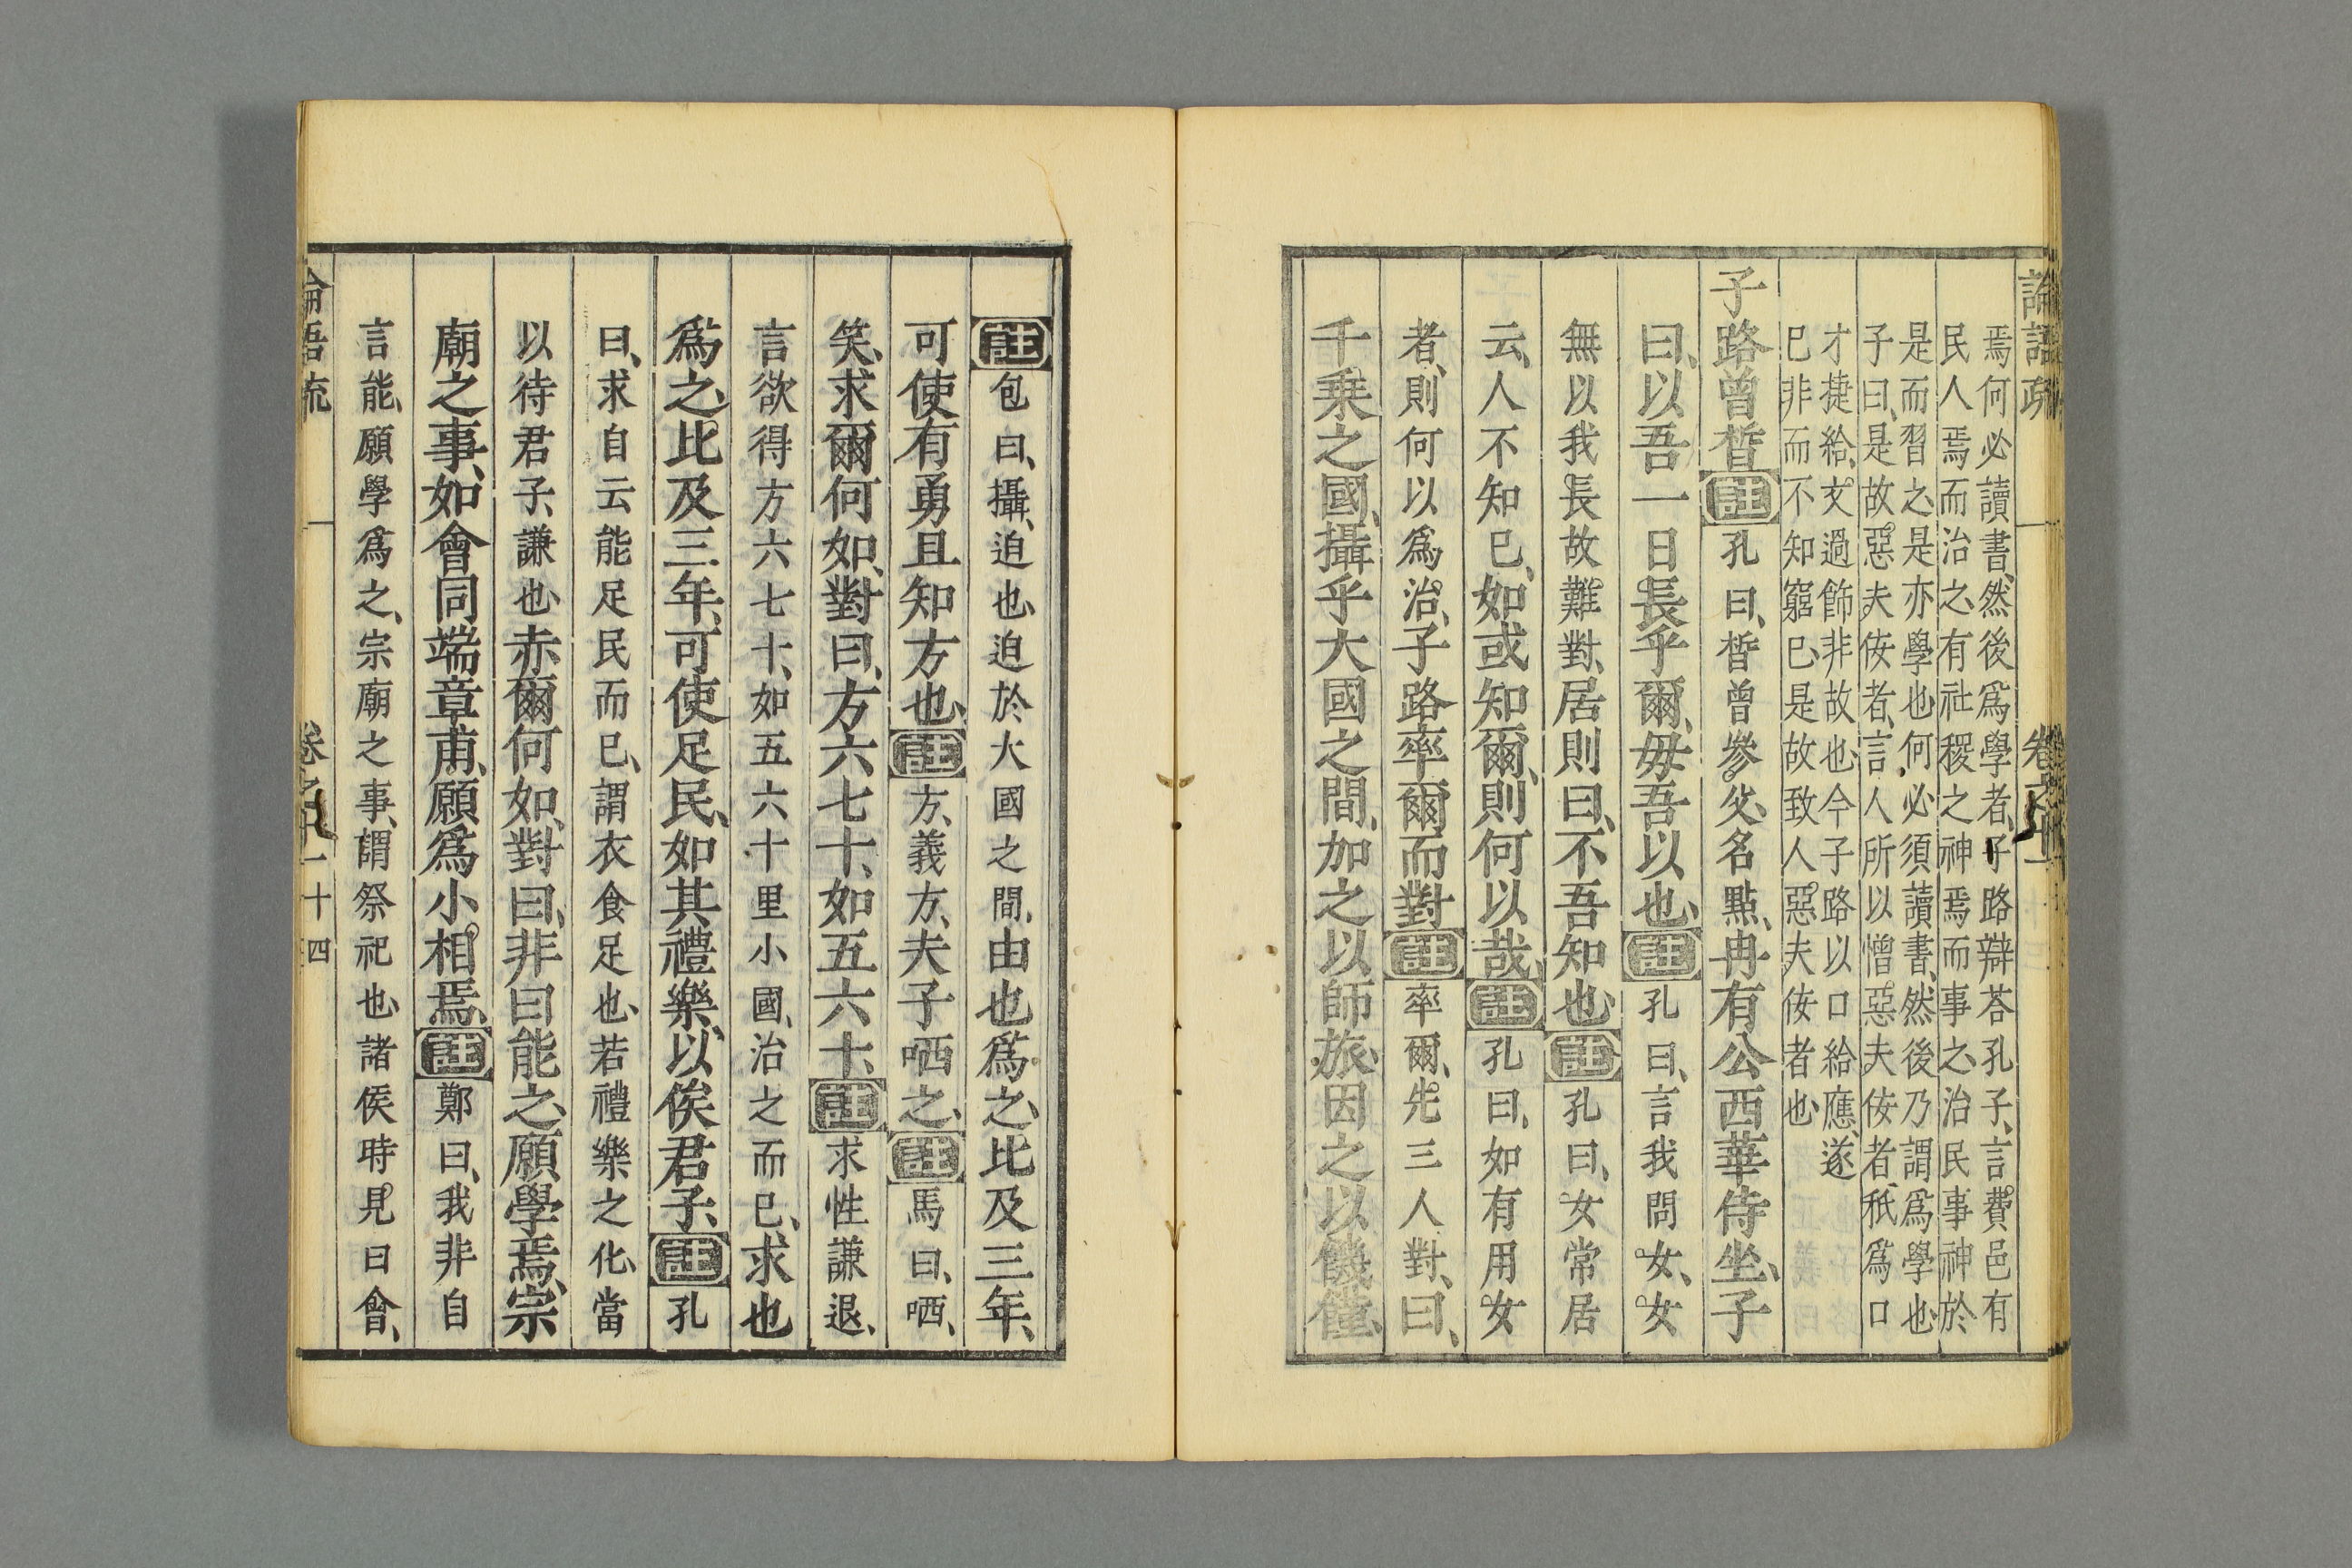 論語疏
焉何必讀書、然後爲學者、子路辯荅孔子、言費邑有
民人焉而治之、有社稷之神焉而事之、治民事神於
是而習之、是亦學也、何必須讀書、然後乃謂爲學也、
子曰、是故惡夫佞者、言、人所以憎惡夫佞者、秖爲口
才捷給、文過飾非故也、今子路以口給應、遂
巳非而不知窮巳、是故致人惡夫佞者也、
子路曾晳註孔曰、晳曾參父、名點、冉有公西華侍坐、子
曰、以吾一日長乎爾、毋吾以也、註孔曰、言我問女、女
無以我長故難對、居則曰、不吾知也、註孔曰、女常居
云、人不知巳、如或知爾、則何以哉、註孔曰、如有用女
者、則何以爲治、子路率爾而對註率爾、先三人對、曰、
千乗之國、攝乎大國之間、加之以師旅、因之以饑饉、
註包曰、攝、迫也、迫於大國之間、由也爲之、比及三年、
可使有勇且知方也、註方、義方、夫子哂之、註馬曰、哂、
笑、求爾何如、對曰、方六七十、如五六十、註求性謙退、
言欲得方六七十、如五六十里小國、治之而巳、求也
爲之、比及三年、可使足民、如其禮樂、以俟君子、註孔
曰、求自云能足民而巳、謂衣食足也、若禮樂之化、當
以待君子、謙也、赤爾何如、對曰、非曰能之、願學焉、宗
廟之事、如會同端章甫、願爲小相焉、註鄭曰、我非自
言能、願學爲之、宗廟之事、謂祭祀也、諸侯時見曰會、
十四